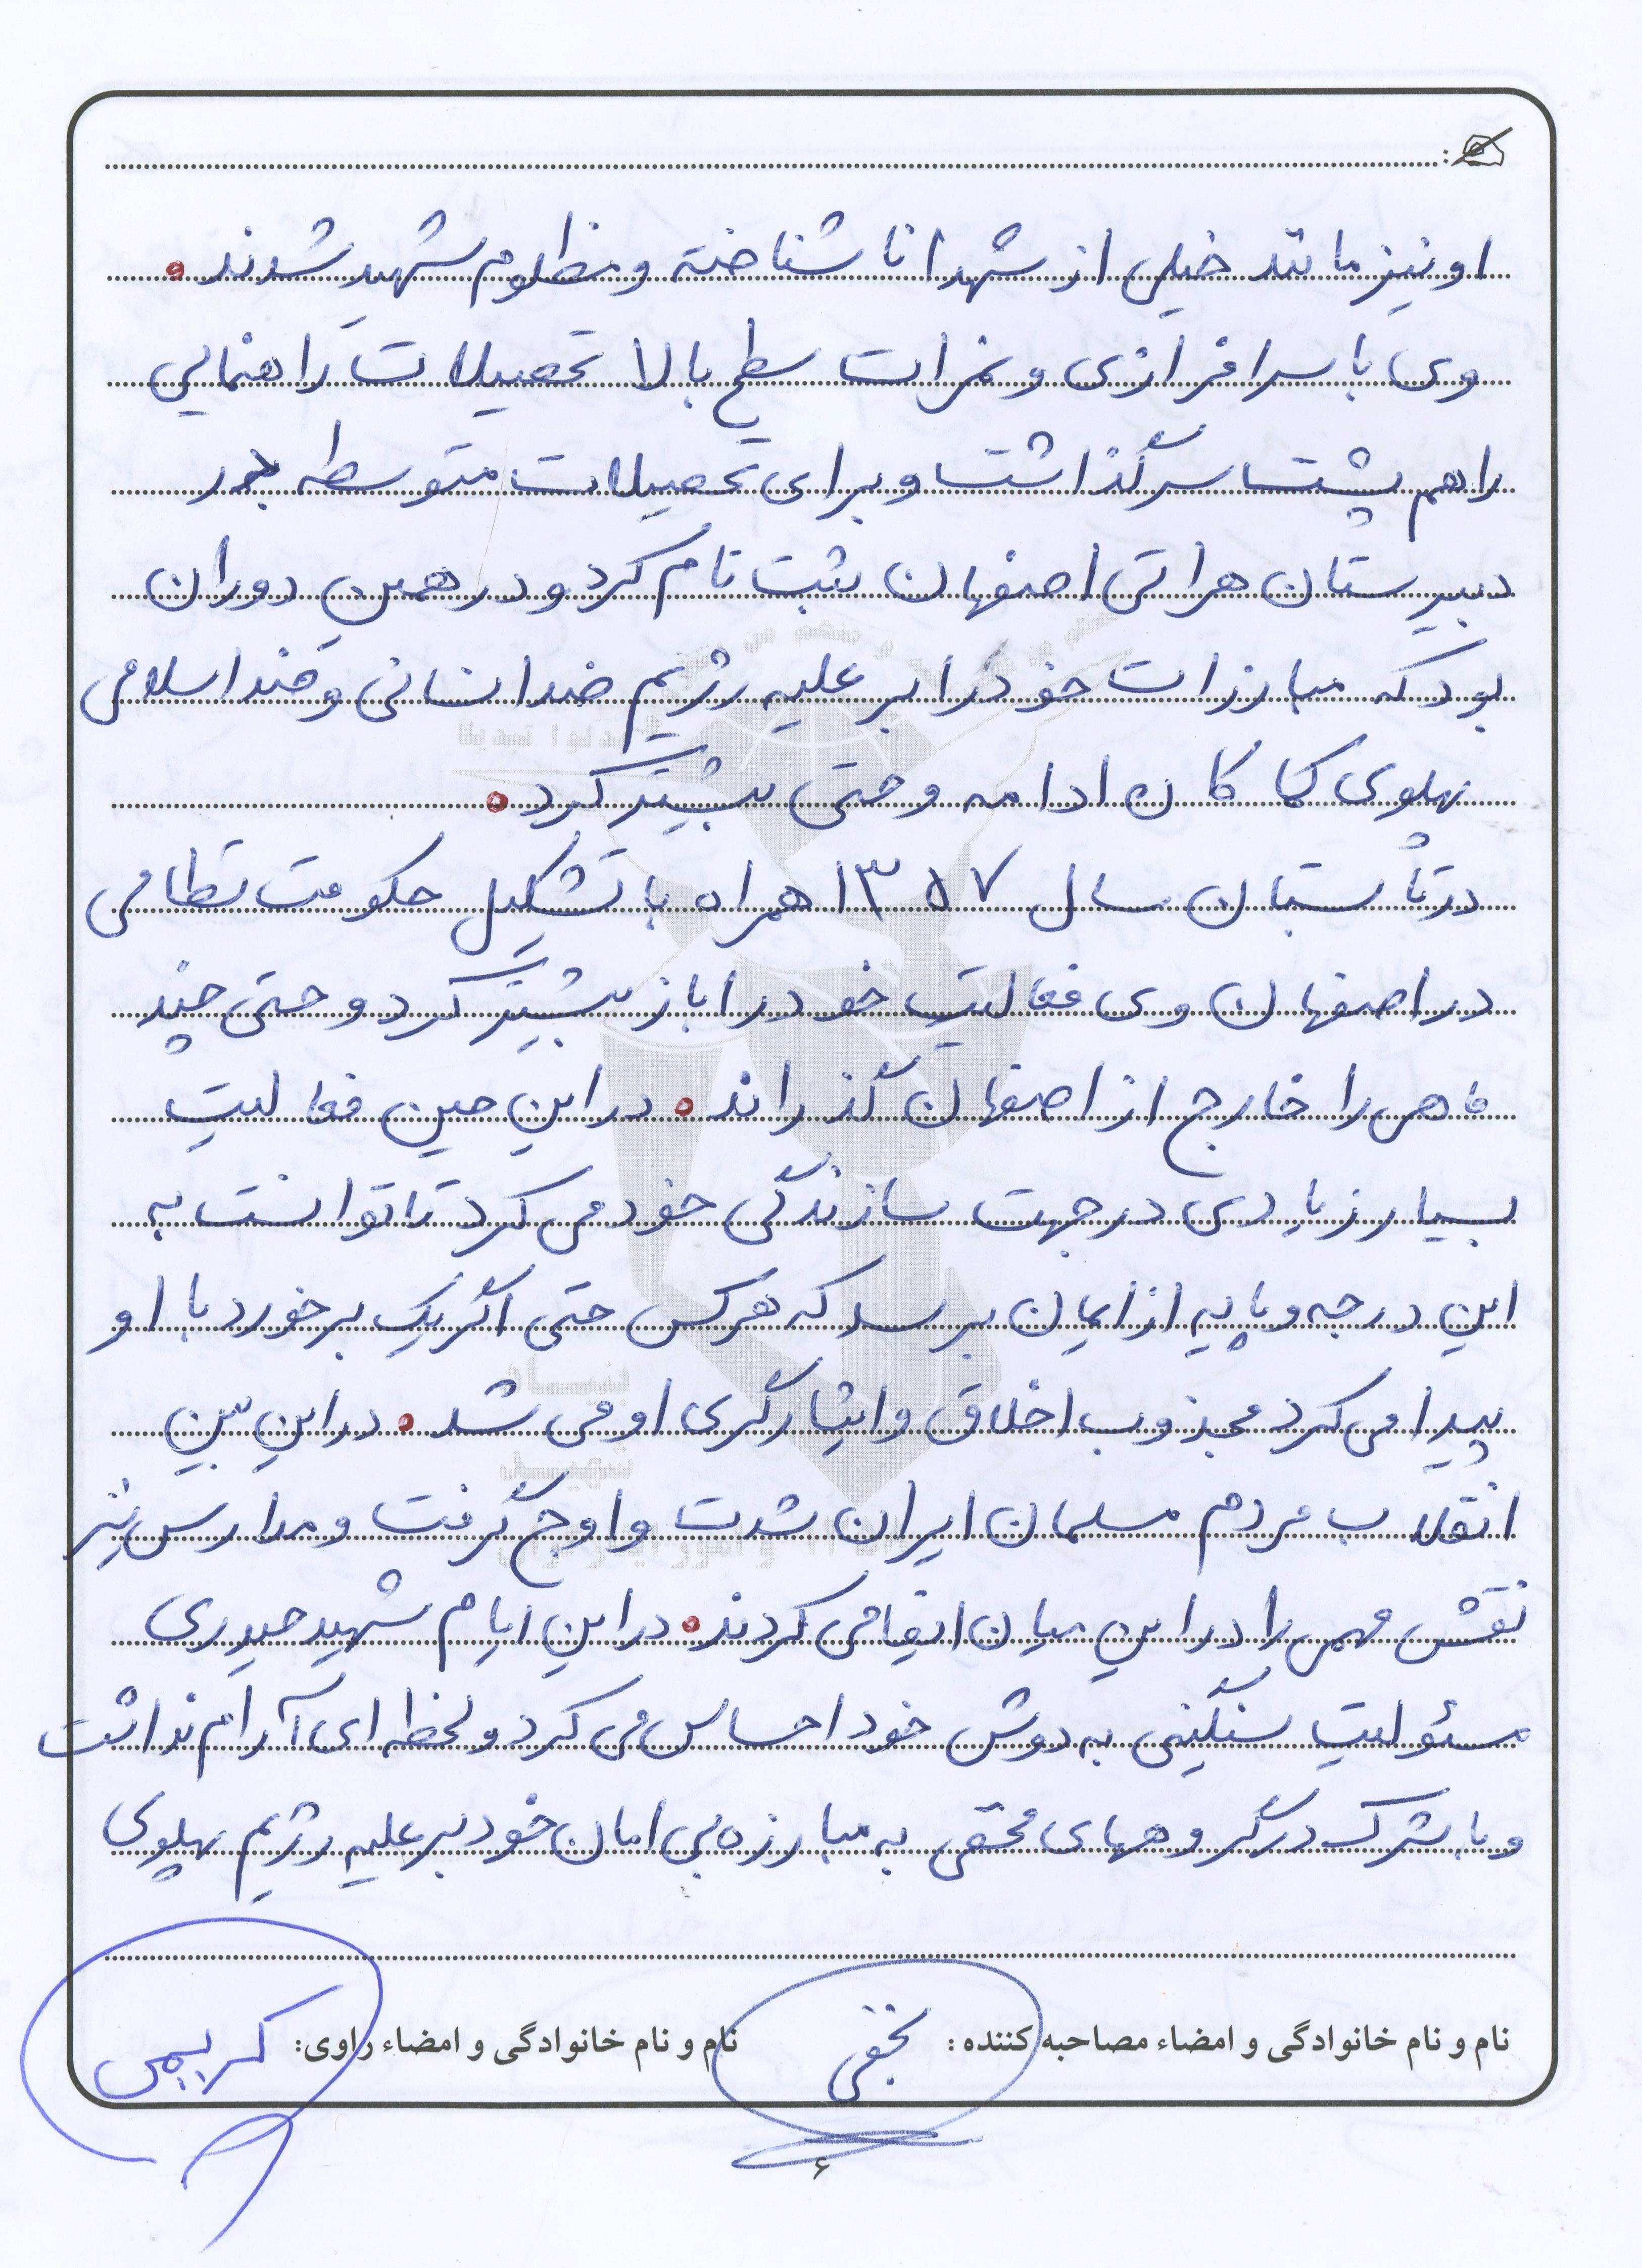 او نیز مانند خیلی از شهدا ناشناخته و مظلوم شهید شدند.
وی با سرافرازی و نمرات سطح بالا تحصیلات راهنمایی
را هم پشت سر گذاشت و برای تحصیلات متوسطه در
دبیرستان هراتی اصفهان ثبت نام کرد و در همین دوران
بود که مبارزات خود را بر علیه رژیم ضد انسانی و ضد اسلامی
پهلوی کماکان ادامه و حتی بیشتر کرد.
در تابستان سال ۱۳۵۷ همراه با تشکیل حکومت نظامی
در اصفهان وی فعالیت خود را باز بیشتر کرد و حتی چند
ماهی را خارج از اصفهان گذراند. در این حین فعالیت
بسیار زیادی در جهت سازندگی خود می کرد تا توانست به
این درجه و پایه از ایمان برسد که هر کس حتی اگر یک برخورد با او
پیدا می کرد مجذوب اخلاق و ایثارگری او می شد. در این بین
انقلاب مردم مسلمان ایران شدت و اوج گرفت و مدارس نیز
نقش مهمی را در این میان ایفا می کردند. در این ایام شهید حیدری
مسئولیت سنگینی به دوش خود احساس می کرد و لحظه ای آرام نداشت
و با شرکت در گروههای مخفی به مبارزه بی امان خود بر علیه رژیم پهلوی
نام و نام خانوادگی و امضاء مصاحبه کننده: نجفی نام و نام خانوادگی و امضاء راوی: کریمی
۶